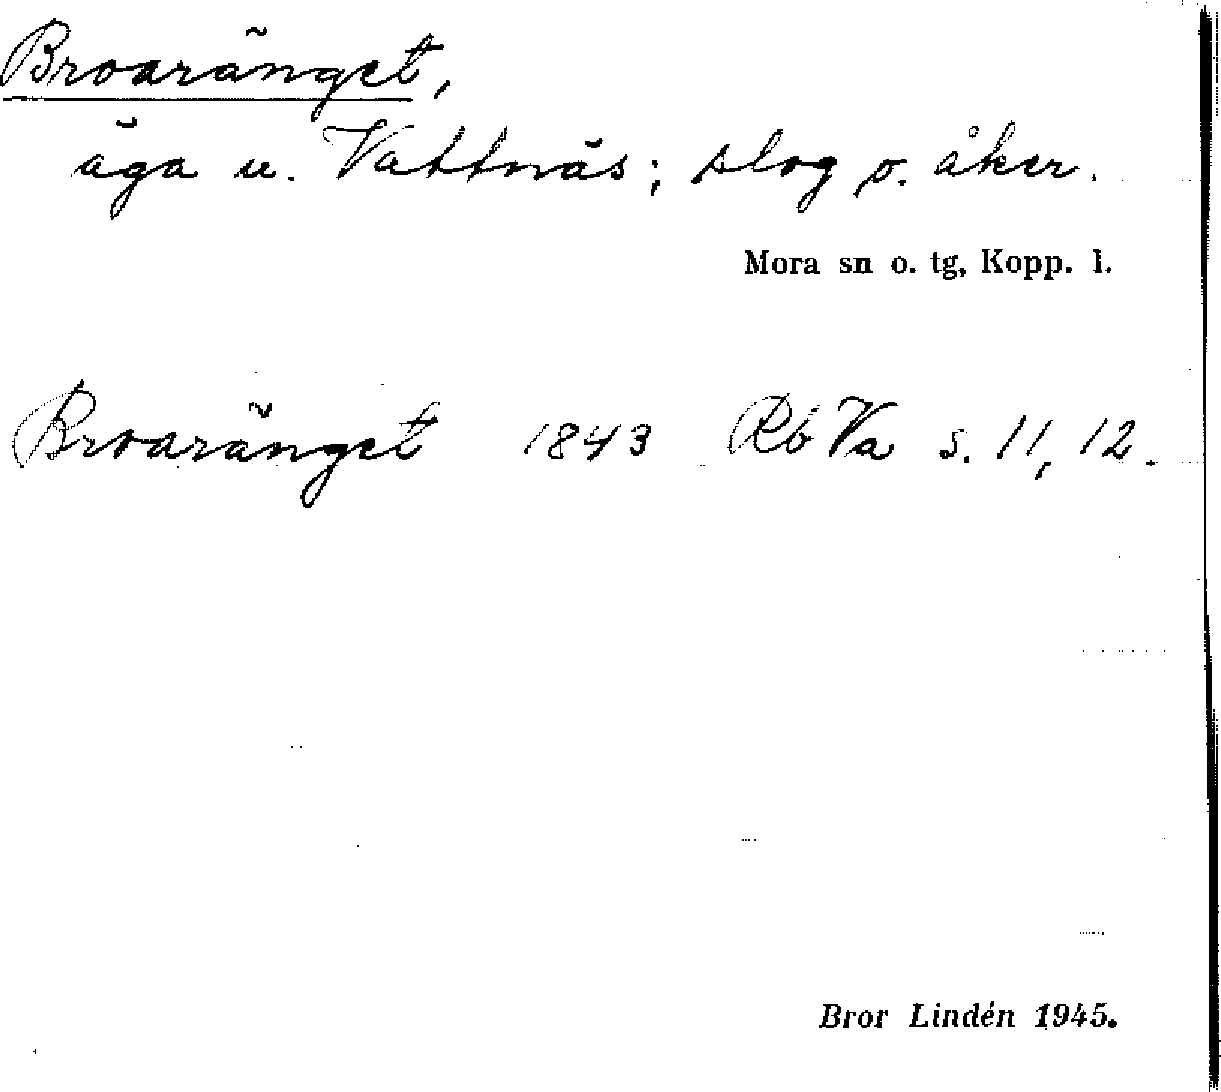 Broaränget,
äga u. Vattnäs; slog o. åker.
Mora sn o. tg, Kopp. l.
Broaränget 1843 Rb Va s. 11, 12.
Bror Lindén 1945.